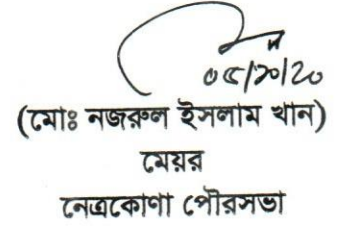 ০৫/১০/২০
(মোঃ নজরুল ইসলাম খান)
মেয়র
নেত্রকোণা পৌরসভা